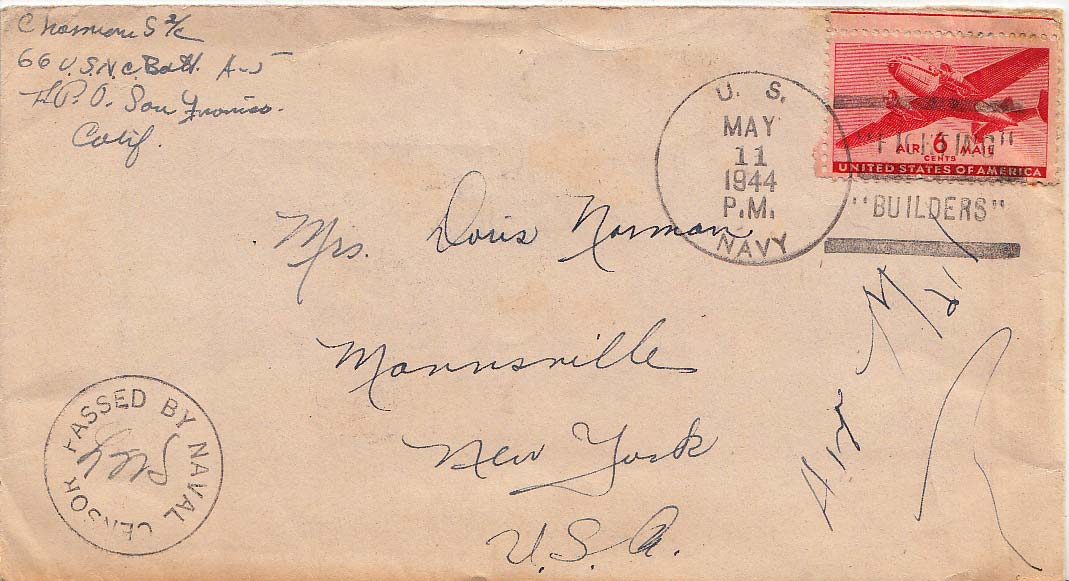 S 2/c
66 U.S.N.C. Batt. A-5
F.P.O. San
Calif.
U. S.
MAY
11
1944
P.M.
NAVY
"FIGHTING"
"BUILDERS"
AIR 6 MAIL
CENTS
UNITED STATES OF AMERICA
Mrs. Doris Norman
Mannsville
New York
U.S.A.
Air Mail
PASSED BY NAVAL CENSOR